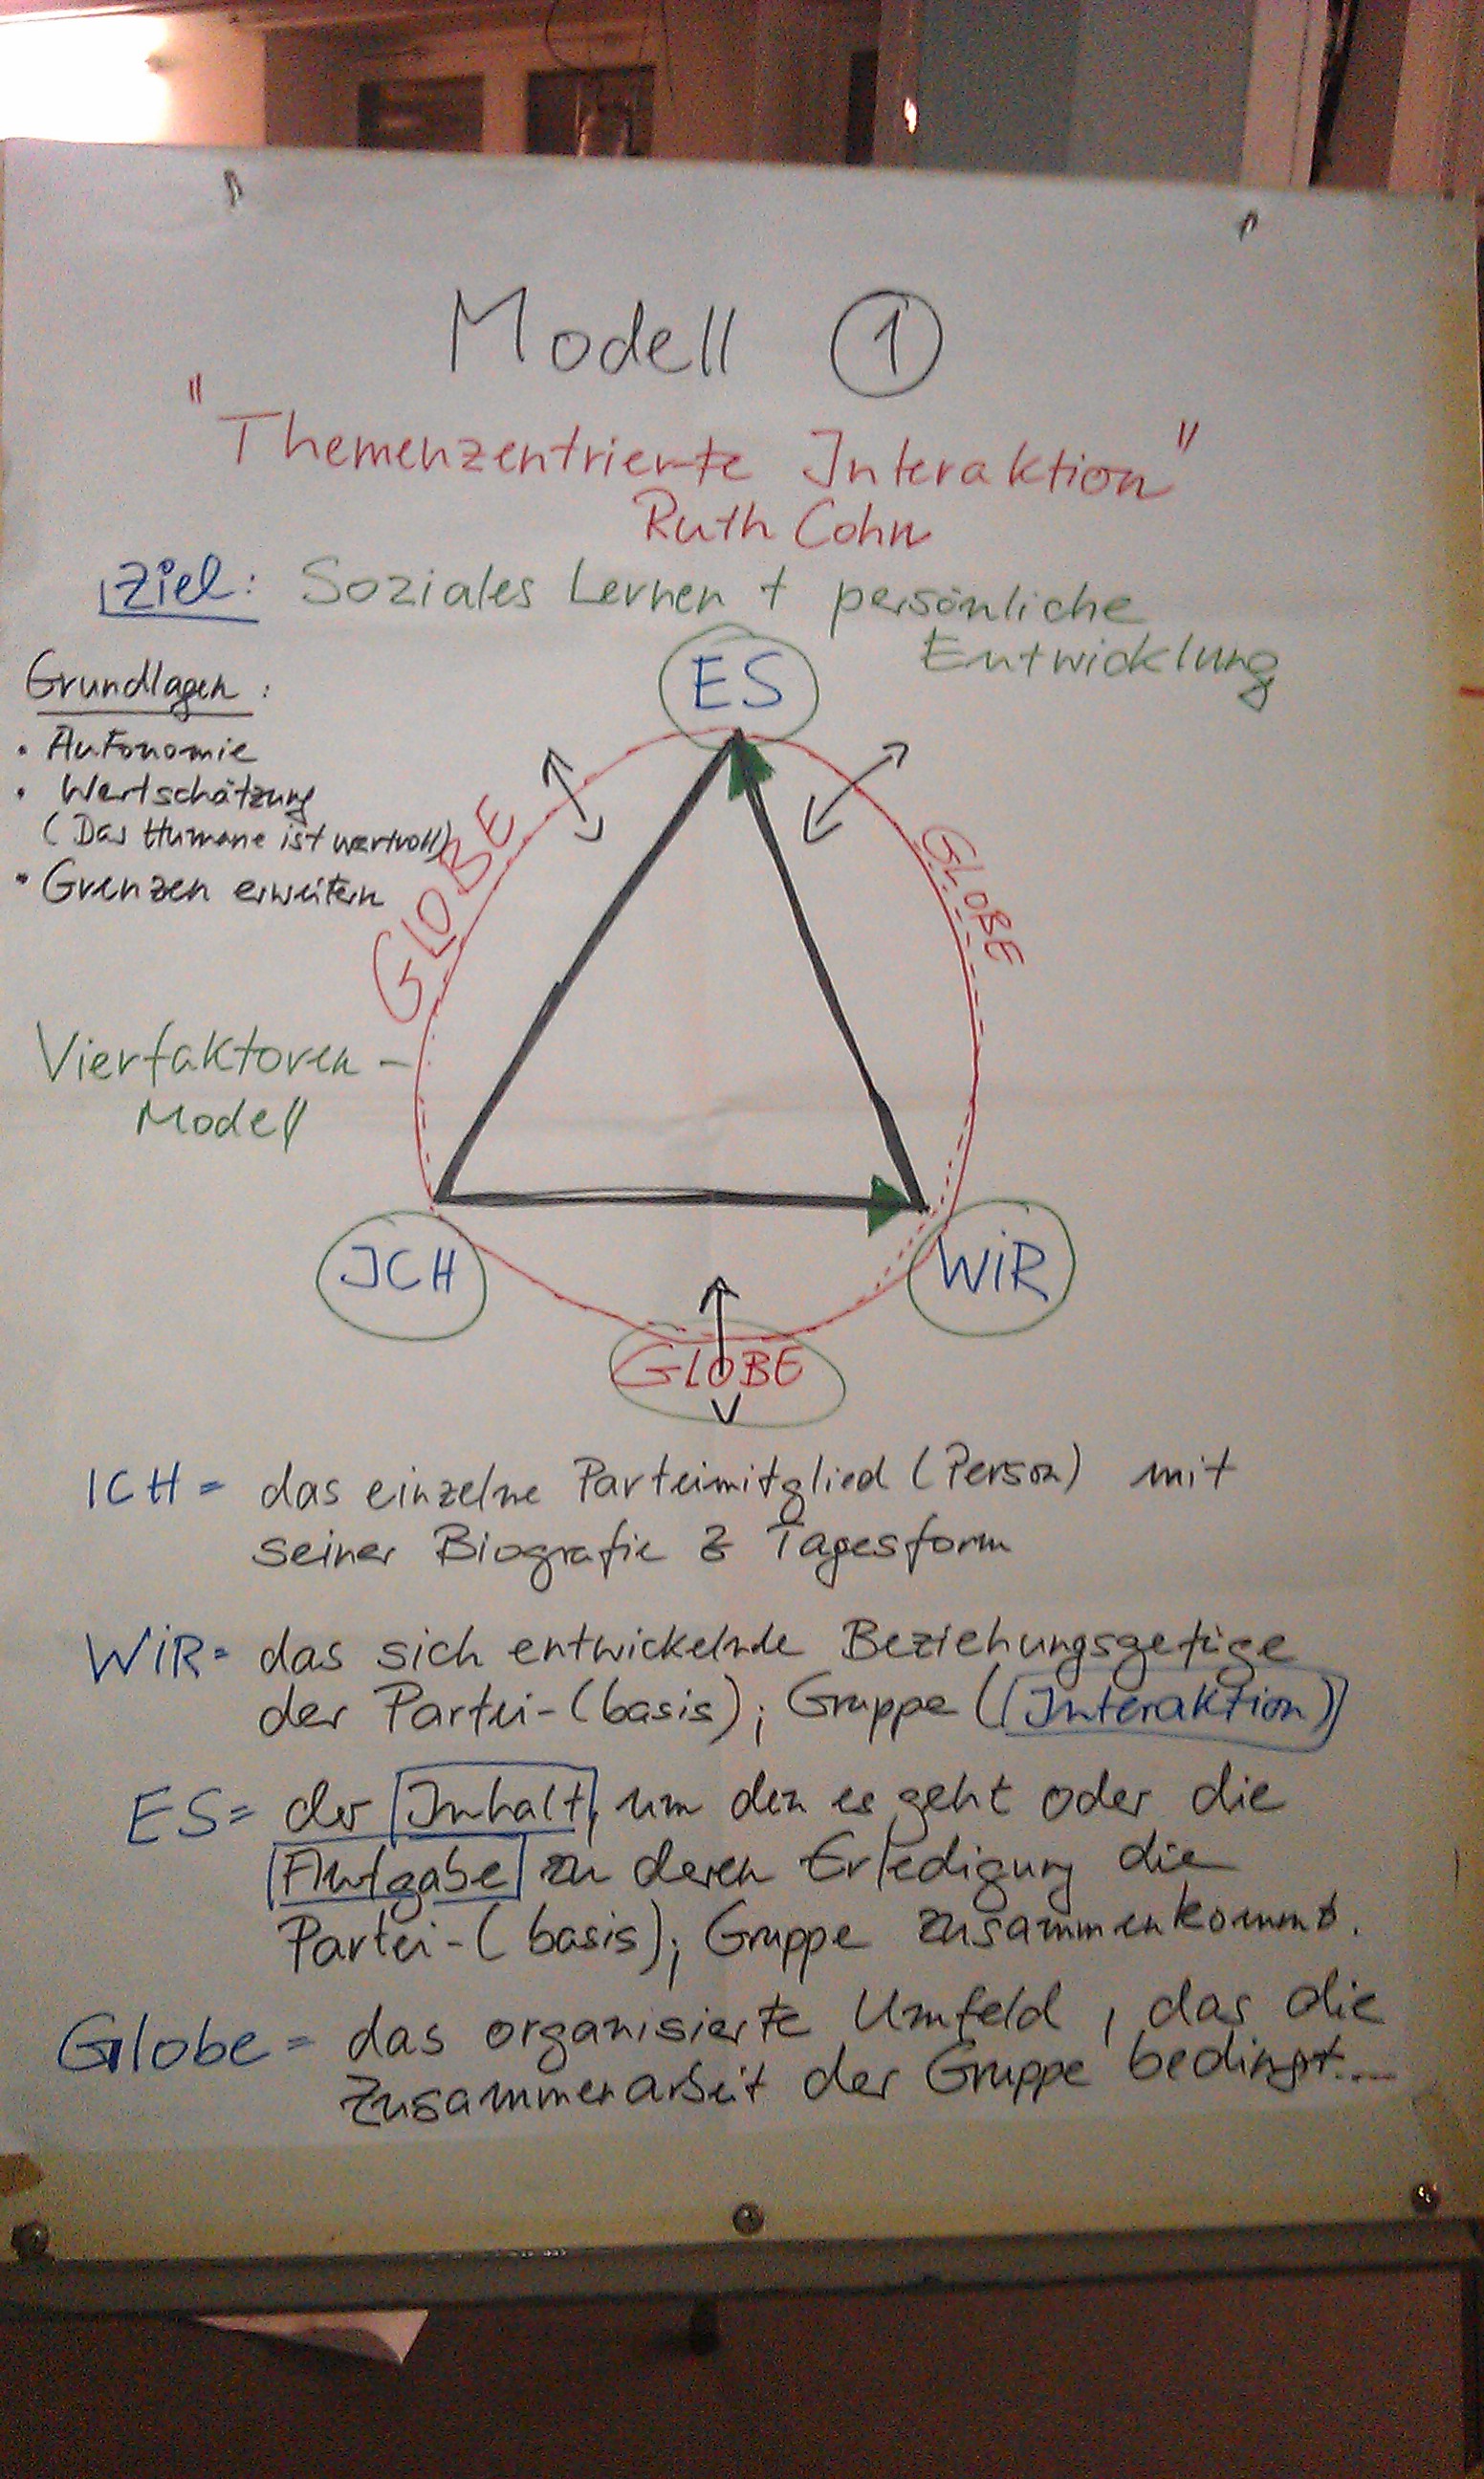 Modell ①
"Themenzentrierte Interaktion"
Ruth Cohn
Ziel: Soziales Lernen + persönliche
Entwicklung
Grundlagen:
• Autonomie
• Wertschätzung
(Das Humane ist wertvoll)
• Grenzen erweitern
Vierfaktoren-
Modell
ES
GLOBE
GLOBE
ICH
WIR
GLOBE
ICH = das einzelne Parteimitglied (Person) mit
seiner Biografie & Tagesform
WIR = das sich entwickelnde Beziehungsgefüge
der Partei-(basis); Gruppe (Interaktion)
ES = der Inhalt, um den es geht oder die
Aufgabe zu deren Erledigung die
Partei-(basis); Gruppe zusammenkommt.
Globe = das organisierte Umfeld, das die
Zusammenarbeit der Gruppe bedingt....